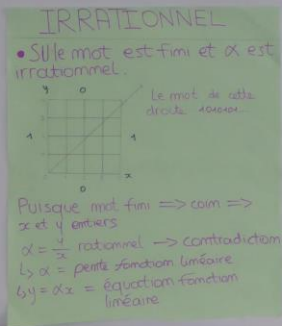 IRRATIONNEL
• SU le mot est fini et α est
irrationnel.
y 0
Le mot de cette
droite 101010...
1 1
x
0
Puisque mot fini => coin =>
x et y entiers
α = y/x rationnel -> contradiction
↳ α = pente fonction linéaire
↳ y = αx = équation fonction
linéaire